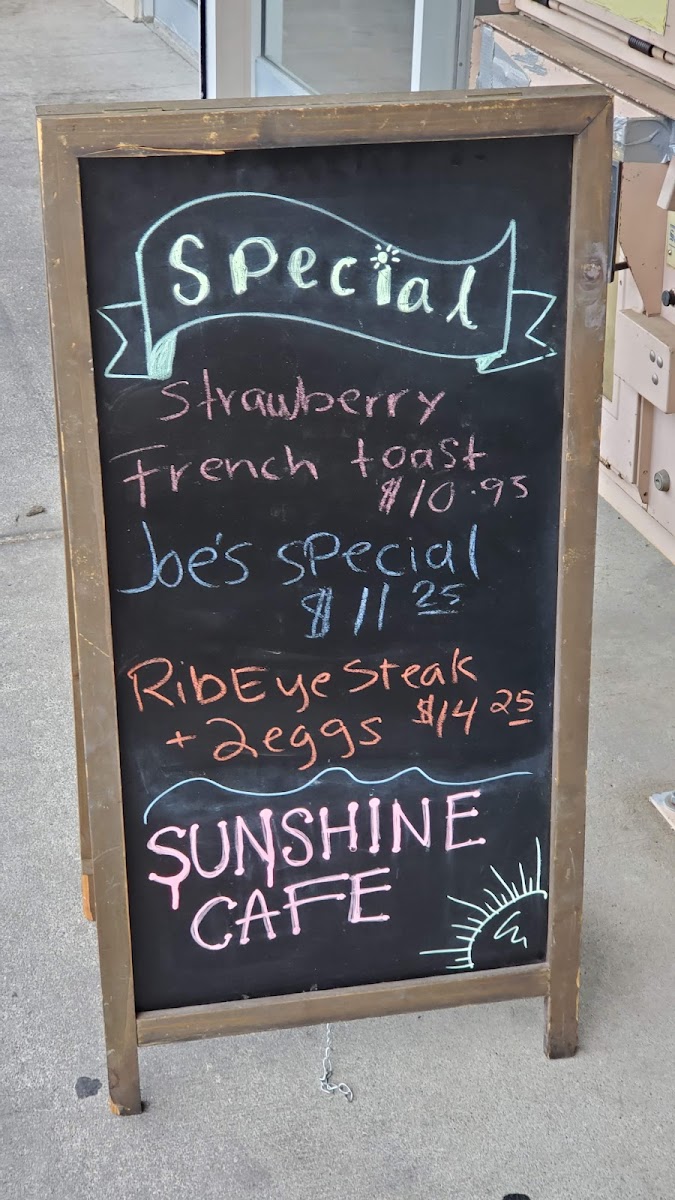 Special
Strawberry
French toast
$10.95
Joe's special
$11 25
RibEye Steak
+ 2eggs $14 25
SUNSHINE
CAFE